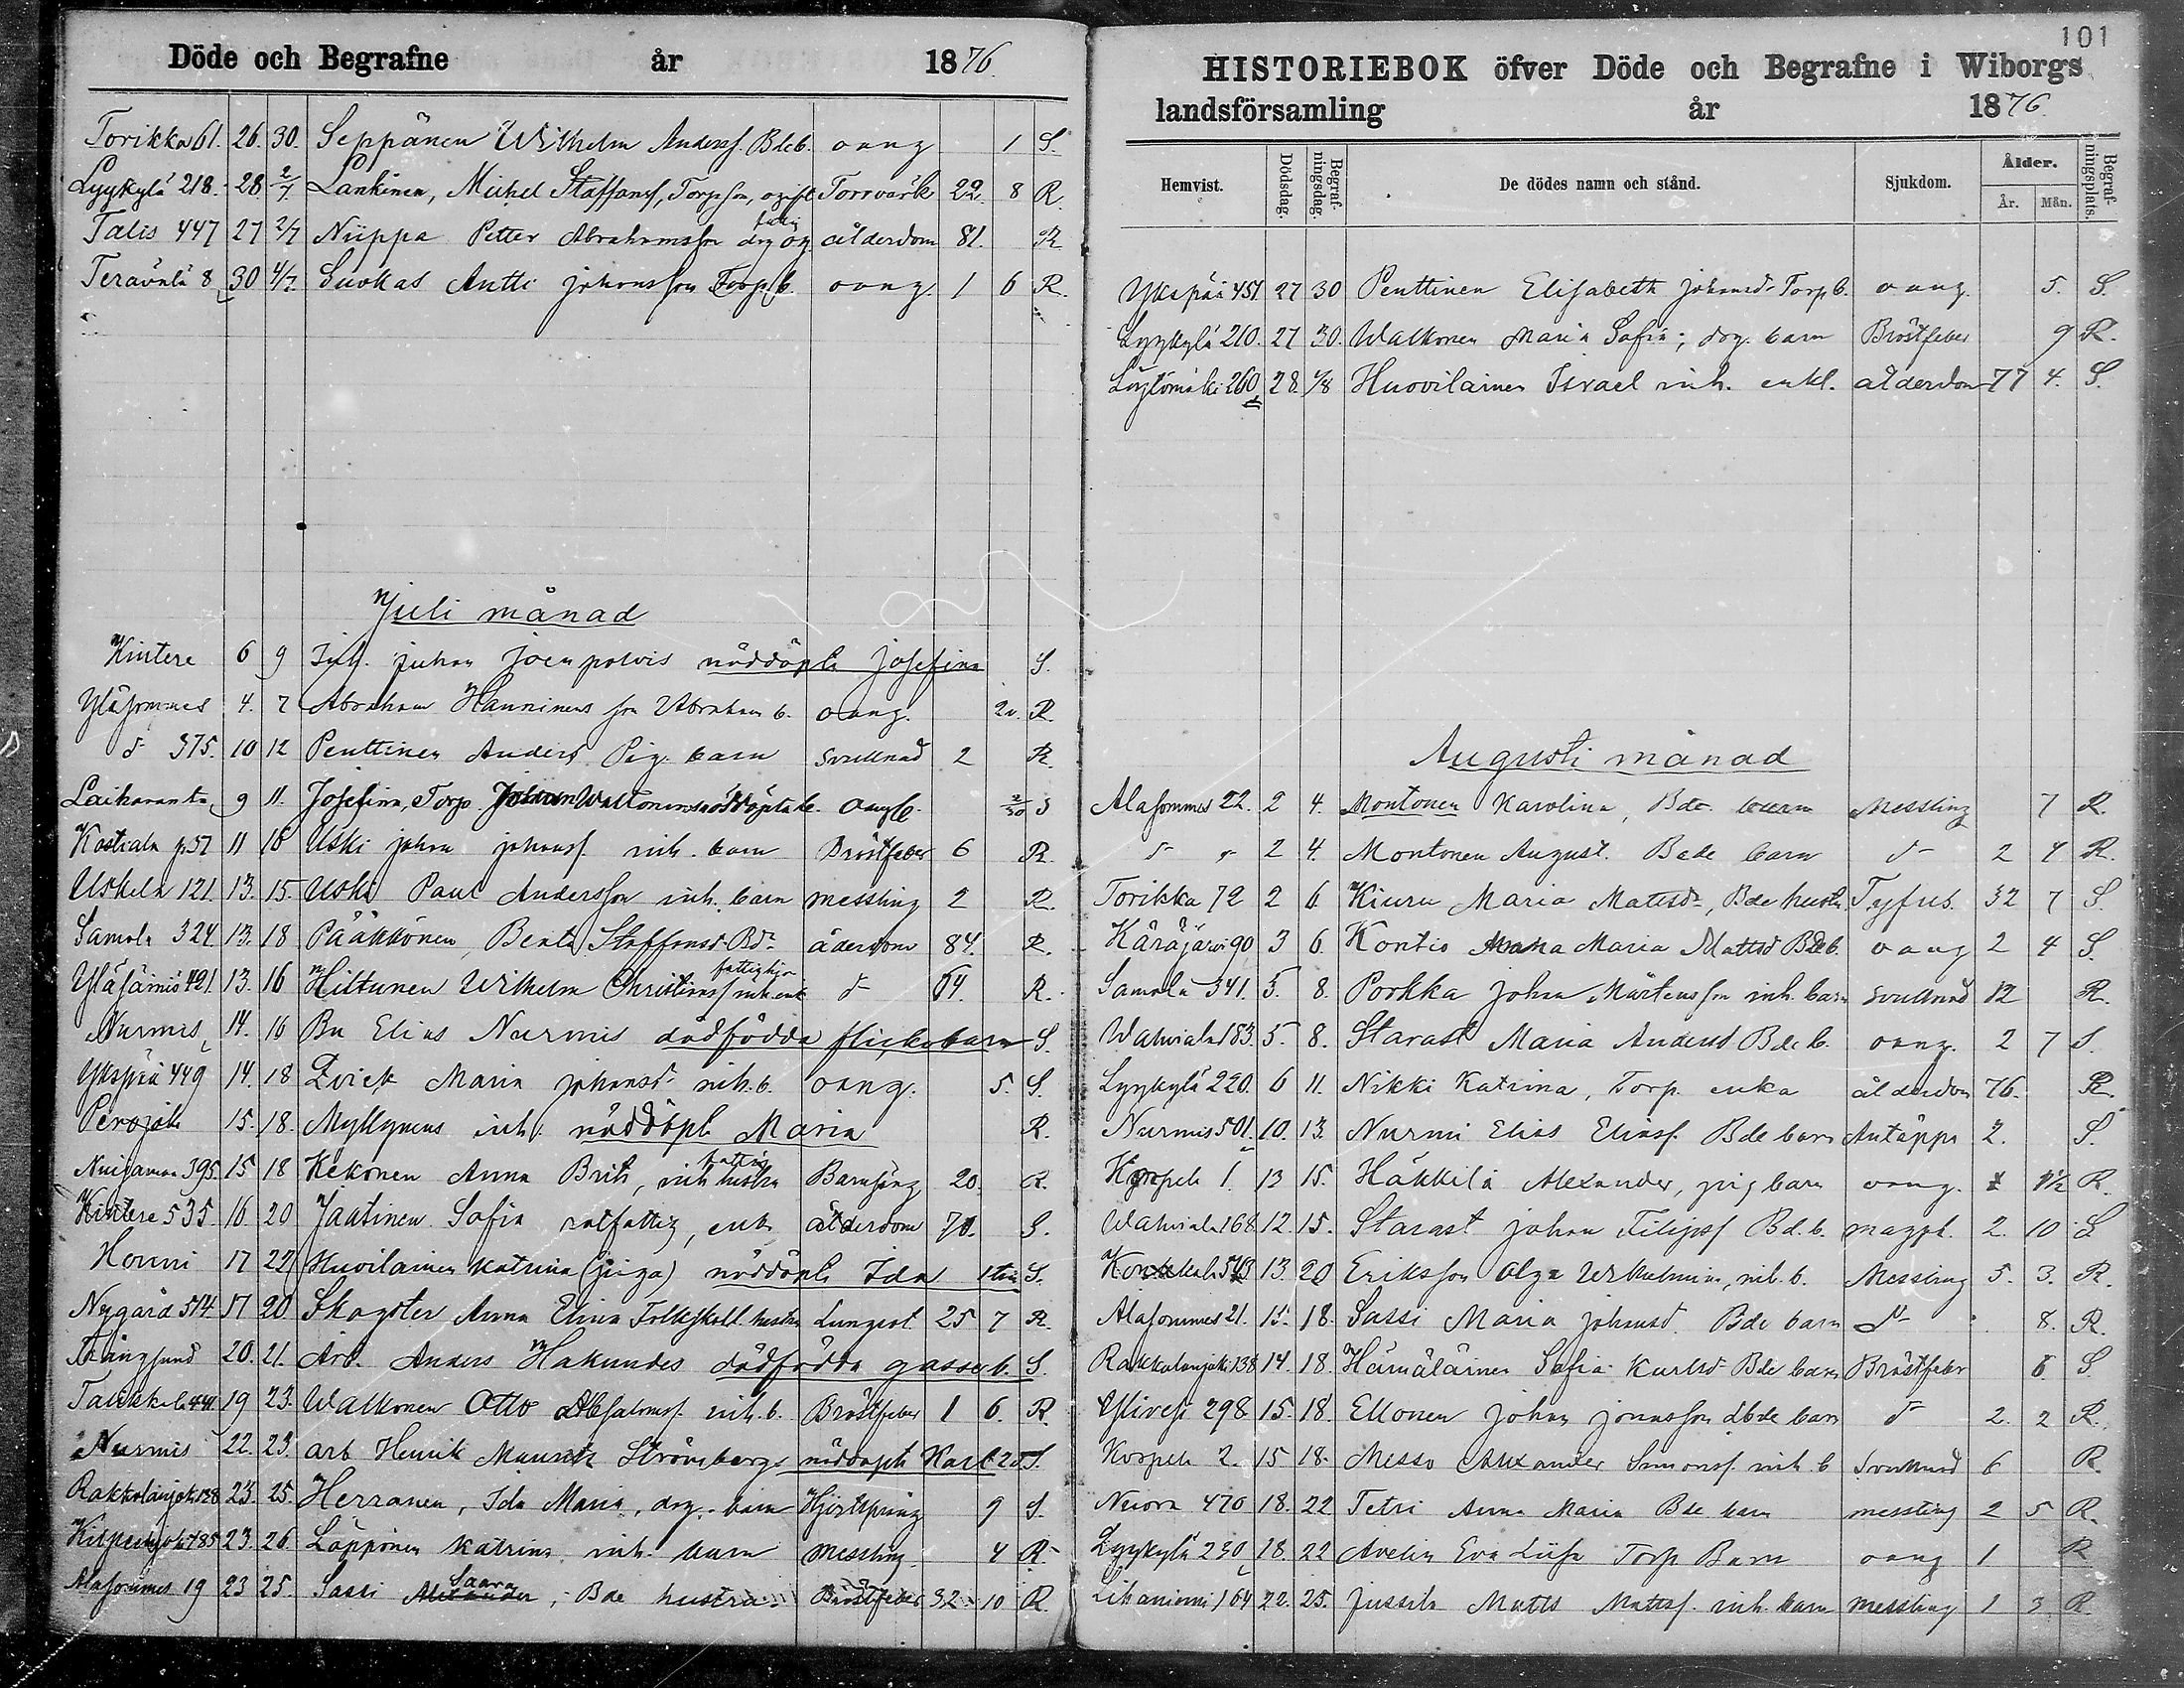 Döde och Begrafne år 1876.
Torikka 61. 26. 30. Seppänen Wilhelm Anderss. Bdeb. oang 1 S.
Lyykylä 218. 28. 2/7. Lankinen, Michel Staffanss, Torpson, ogift Torrvärk 22. 8 R.
Talis 447 27 2/7 Niippa Petter Abrahamsson drg ålderdom 81. R
Terävälä 8 30 4/7. Suokas Antti Johansson Torp.b. oang. 1 6 R.
Juli månad
Kintere 6 9 Inh. Juhan nöddöpte Josefina S.
Yläsommes 4. 7 Abraham Hanninens son Abraham b. oang. 20. R.
d- 375. 10 12 Penttinen Anders Pig. barn svullnad 2 R.
Laihavanta 9 11. Josefina, Torp. Johan Waltonens nöddöpta b. 2/30 S
Kostiala 57 11 16 Uski Johan Johanss. inh. barn Bröstfeber 6 R.
Uskela 121. 13. 15. Uski Paul Andersson inh. barn messling 2 R.
Samola 324 13. 18 Pääkkönen, Beata Staffansd. Bd. åderdom 84. R.
Yläsäiniö 421. 13. 16 Hiltunen Wilhelm Christianss. inh. enk fattighjon d- 64. R.
Nurmis 14. 16 Bn Elias Nurmis dödfödda flickebarn S.
Ykspää 449 14. 18 Zvick Maria Johansd. inh. b. oang. 5. S.
Perojoki 15. 18. Myllynens inh. nöddöpte Maria R.
Nuijamaa 395. 15 18 Kekonen Anna Brita, inh. hustru Barnsäng 20. R.
Kintere 535 16. 20 Jaatinen Sofia rotfattig, enk. ålderdom 70. S.
Honni 17 22 Huovilainen Katrina (piga) nöddöpte Ida S.
Nygård 514. 17 20. Skogster Anna Elina Folkskoll. hustru Lungsot 25 7 R.
Trångsund 20. 21. Arb. Anders Hakundes dödfödda gosseb. S.
Talikkala 441 19 23. Walkonen Otto Absalomss. inh. b. Bröstfeber 1 6. R.
Nurmis 22. 23. arb Henrik Mauritz Strömbergs nöddöpte Karl S.
Rakkolanjoki 138 23. 25. Herranen, Ida Maria, drg. barn 9 S.
Kilpeenjoki 185 23. 26. Läppönen Katrina inh. barn messling. 4 R.
Alasommes 19 23 25. Sassi Saara, Bde hustru Bröstfeber 32 10 R.
101
HISTORIEBOK öfver Döde och Begrafne i Wiborgs
landsförsamling år 1876.
Hemvist. Dödsdag. Begrafningsdag. De dödes namn och stånd. Sjukdom. Ålder. År. Mån. Begrafningsplats.
Ykspää 451. 27 30 Penttinen Elisabeth Johansd. Torp b. oang. 5. S.
Lyykylä 210. 27 30. Walkonen Maria Sofia, drg. barn Bröstfeber 9 R.
Löytömäki 260 28. 1/8 Huovilainen Israel inh. enkl. ålderdom 77 4. S.
Augusti månad
Alasommes 22. 2 4. Montonen Karolina, Bde barn Messling 7 R.
d- d- 2 4. Montonen August. Bde barn d- 2 4 R.
Torikka 72 2 6 Kiuru Maria Mattsd., Bde hustr. Tyfus. 32 7 S.
Käräjärvi 90 3 6. Kontio Maria Mattsd Bdeb. oang 2 4 S.
Samola 341. 5. 8. Porkka Johan Mårtensson inh. barn svullnad 12 R.
Wahviala 183. 5. 8. Starast Maria Andersd Bde b. oang. 2 7 S.
Lyykylä 220. 6 11. Nikki Katrina, Torp. enka ålderdom 76. R.
Nurmis 501. 10. 13. Nurmi Elias Eliass. Bde barn Antäppa 2. S.
Korpela 1. 13 15. Häkkilä Alexander, pig barn oang. R.
Wahviala 168. 12. 15. Starast Johan Filipss Bd. b. magpl. 2. 10 S
13. 20 Eriksson Olga Wilhelmina, inh. b. Messling 5. 3. R.
Alasommes 21. 15. 18. Sassi Maria Johansd. Bde barn d- 8. R.
Rakkolanjoki 138 14. 18. Hämäläinen Sofia Bde barn Bröstfeber 6. S.
Ylivesi 298 15. 18. Ellonen Johan Jonasson Lbde barn d- 2. 2 R.
Korpela 2. 15 18. Messo Alexander Simonss. inh. b Svullnad 6 R.
Nuora 470 18. 22 Tetri Anna Maria Bde barn messling 2 5 R.
Lyykylä 230 18. 22 Avelin Eva Lisa Torp Barn oang 1 R
Lihaniemi 164 22. 25. Jussila Matts Mattss. inh. barn messling 1 3 R.